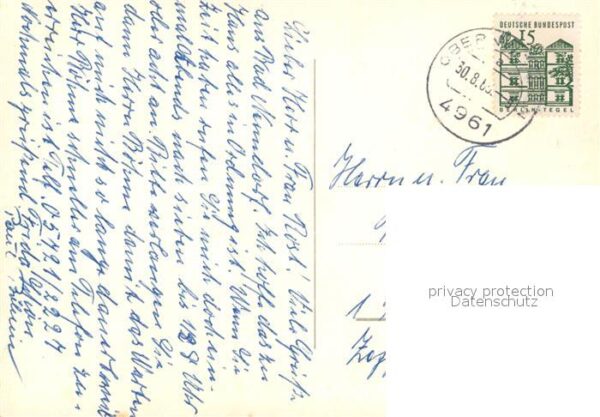 Liebe Herr u. Frau Rösl! Viele Grüße
aus Bad Nenndorf. Ich hoffe das zu
Haus alles in Ordnung ist! Wenn Sie
Zeit haben rufen Sie mich doch ein-
mal Abends nach sieben bis 1/2 9 Uhr
oder acht an. Bitte verlangen Sie
dann Herrn Böhme damit das Warten
auf mich nicht so lange dauert
Herr Böhme schneller am Telefon zu
erreichen ist. Telf. 05421/2297
Nochmals grüßend Frida
DEUTSCHE BUNDESPOST
15
BERLIN-TEGEL
OBER
30.8.65
4961
Herrn u. Frau
privacy protection
Datenschutz